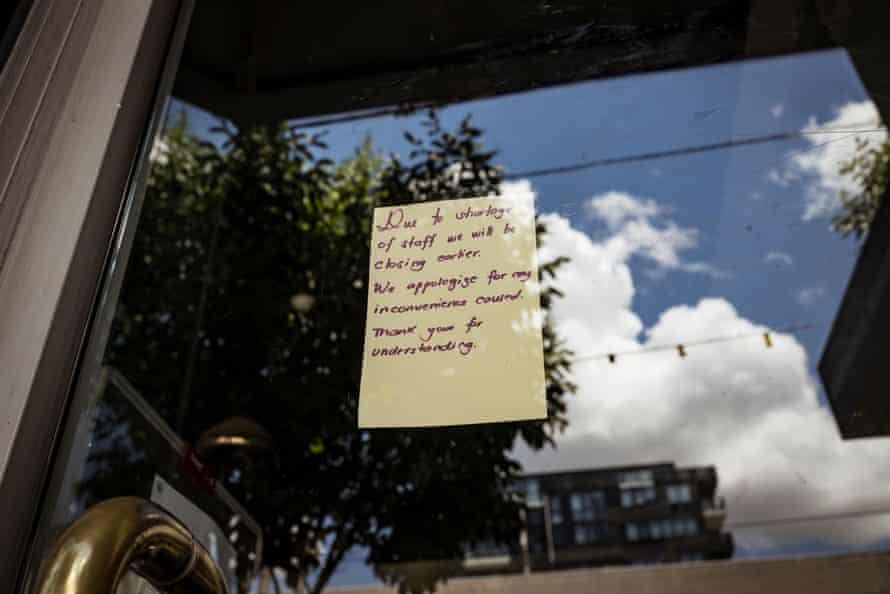 Due to shortage
of staff we will be
closing earlier.
We appologize for any
inconvenience caused.
Thank your for
understanding.